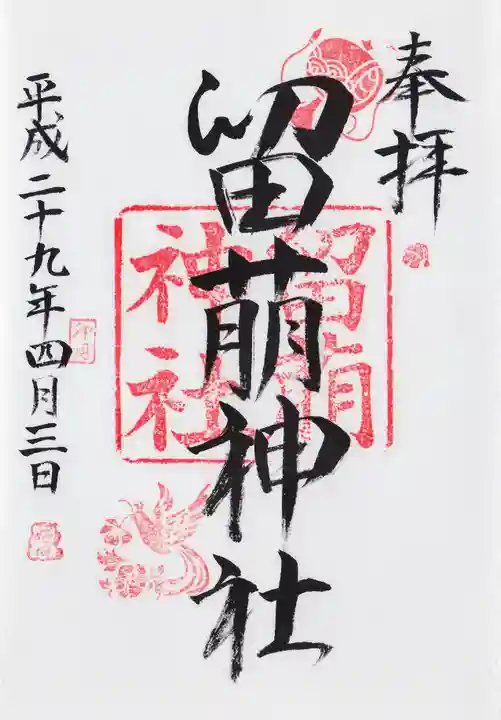 奉拝
留萌神社
留萌
神社
平成二十九年四月三日
卯月